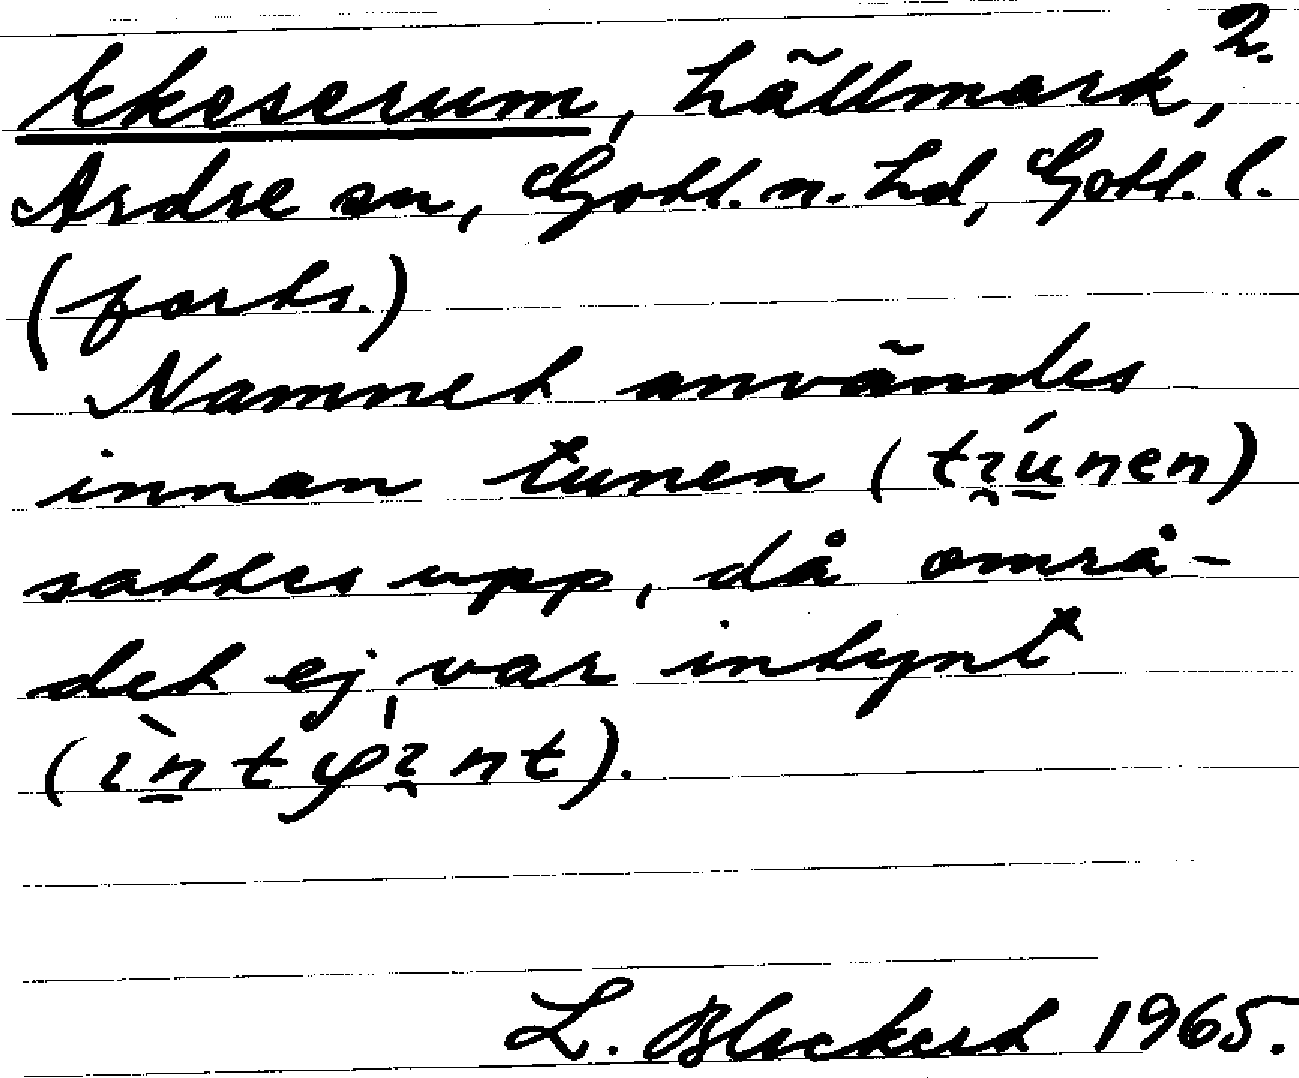 Ekeserum, hällmark, 2.
Ardre sn, Gotl. n. hd, Gotl. l.
(forts.)
Namnet användes
innan tunen (tɿúnen)
sattes upp, då områ-
det ej var intynt
(ɿ̀ntyɿ̍nt).
L. Bleckert 1965.